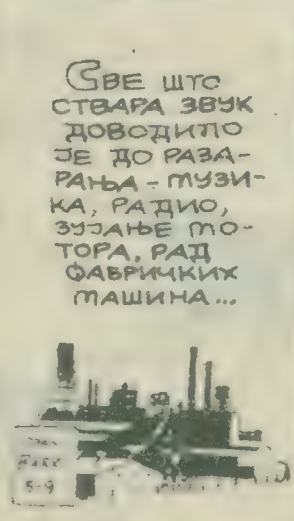 СВЕ ШТО
СТВАРА ЗВУК
ДОВОДИЛО
ЈЕ ДО РАЗА-
РАЊА - МУЗИ-
КА, РАДИО,
ЗУЈАЊЕ МО-
ТОРА, РАД
ФАБРИЧКИХ
МАШИНА...
5-9